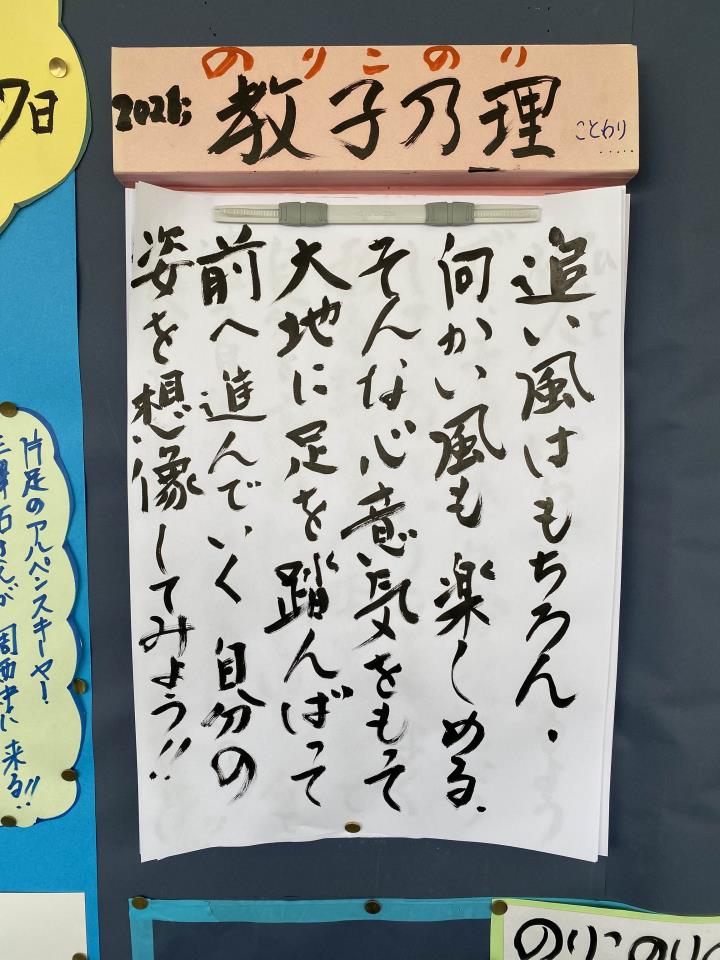 のりこのり
2021;
教子乃理
ことわり.....
追い風はもちろん、
何かい風も楽しめる、
そんな心意気をもって
大地に足を踏んばって
前へ進んでいく自分の
姿を想像してみよう!!
7日
片足のアルペンスキーヤー!
が周西中に来る!!
のりこのりの